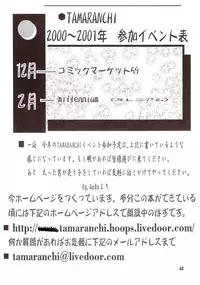 ●TAMARANCHI
2000〜2001年 参加イベント表
12月
コミックマーケット59
2月
■一応 今年のTAMARANCHIイベント参加予定は、上記に書いているような
感じになっています。もし暇があれば皆様遊びに来てください。
あと、もっと男が売り子をしていればお気軽に話しかけてやってください。
今ホームページをつくっています。多分この本がでている
頃には下記のホームページアドレスで開設中のはずです。
■http://tamaranchi.hoops.livedoor.com/
何か質問があればお気軽に下記のメールアドレスまで
■tamaranchi@livedoor.com
44